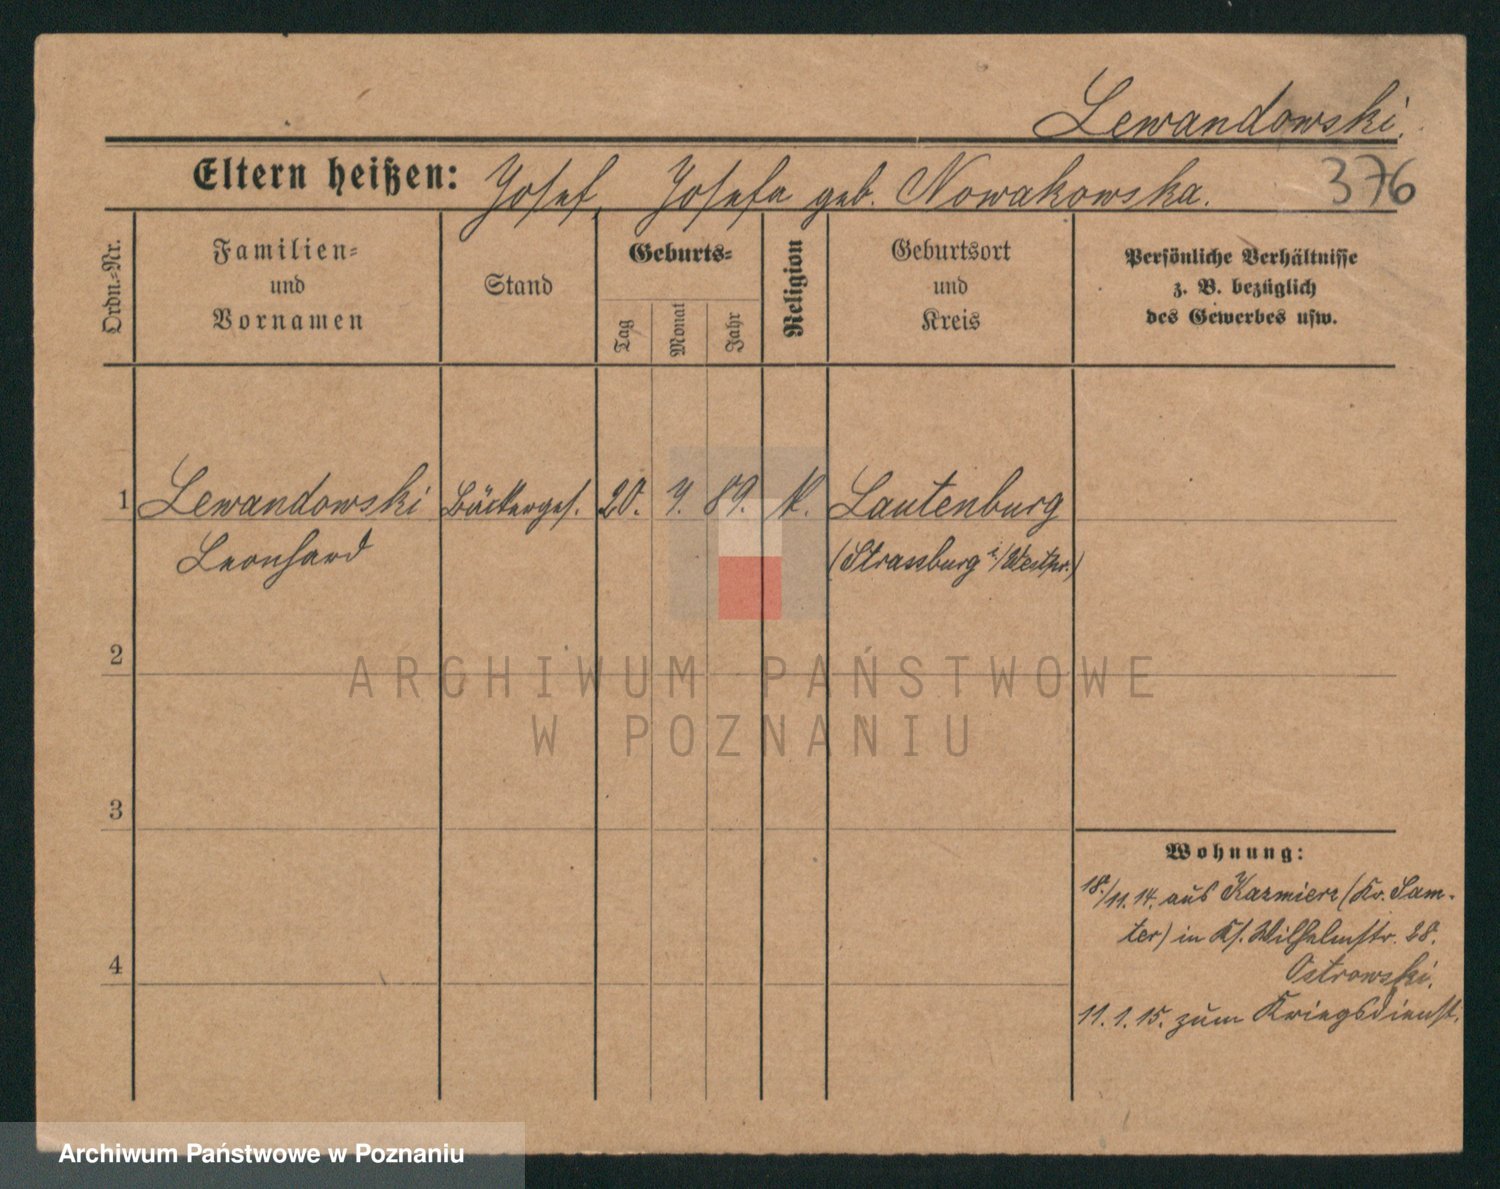 Lewandowski.
Eltern heißen: Josef, Josefa geb. Nowakowska.
376
Ordn.-Nr.
Familien-
und
Vornamen
Stand
Geburts-
Tag
Monat
Jahr
Religion
Geburtsort
und
Kreis
Persönliche Verhältnisse
z. B. bezüglich
des Gewerbes usw.
1 Lewandowski Bäckerges. 20. 9. 89. k. Lautenburg
Leonhard (Strassburg i/Westpr.)
2
ARCHIWUM PAŃSTWOWE
W POZNANIU
3
Wohnung:
18./11. 14. aus Kazmierz (Kr. Sam-
ter) in Wilhelmstr. 28.
4
Ostrowski.
11. 1. 15. zum Kriegsdienst.
Archiwum Państwowe w Poznaniu